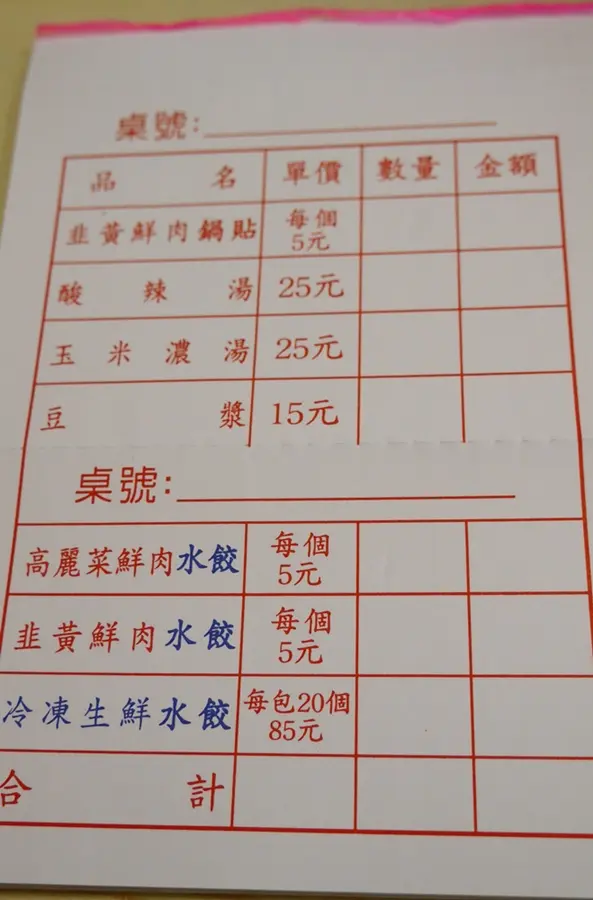 桌號:
品名 單價 數量 金額
韭黃鮮肉鍋貼 每個
5元
酸辣湯 25元
玉米濃湯 25元
豆漿 15元
桌號:
高麗菜鮮肉水餃 每個
5元
韭黃鮮肉水餃 每個
5元
冷凍生鮮水餃 每包20個
85元
合計